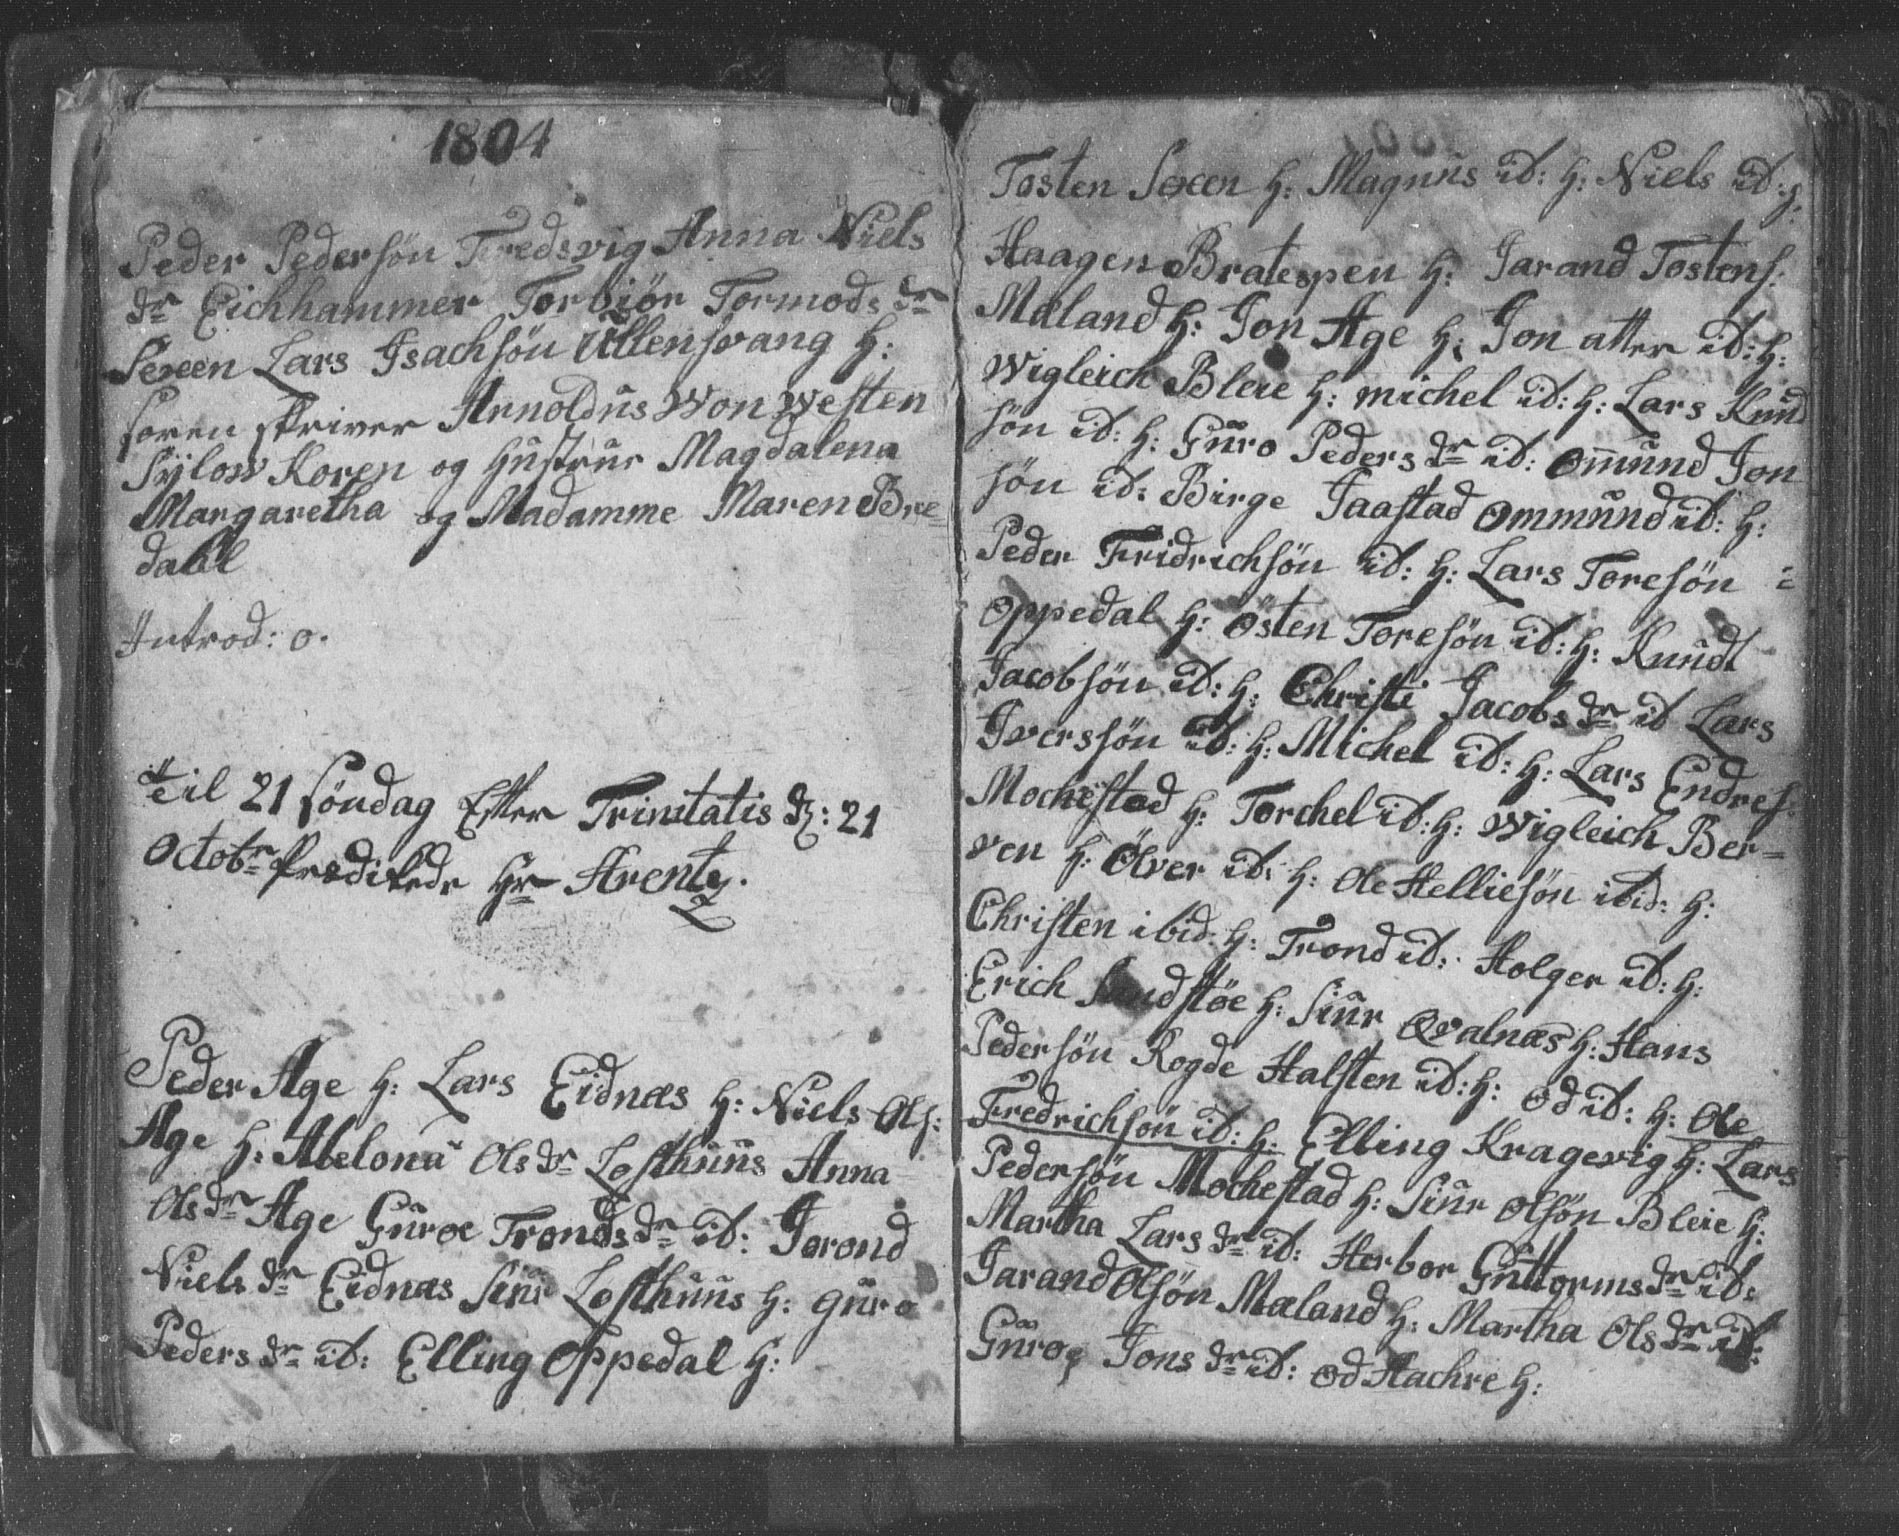 1804
Peder Pedersön Fredsvig Anna Niels
dr Eichhammer Torbiör Tormods dr
Sexen Lars Isachsön Ullensvang h:
Soren skriver Arnoldus Von Westen
Sylow Koren og Hustrue Magdalena
Margaretha og Madamme Maren Bre=
dahl
Introd: o.
til 21 Söndag Efter Trinitatis d: 21
Octobr Prædikede Hr Arentz.
Peder Age h: Lars Eidnæs h: Niels Ols:
Age h: Abelona Ols dr Lofthuus Anna
Ols dr Age Guroe Tronds dr id: Jorond
Niels dr Eidnæs Siur Lofthuus h: guro
Peders dr id: Elling Oppedal h:
Tosten Sexen h: Magnus id: h: Niels id: h:
Haagen Bratespen h: Jarand Tostens:
Mæland h: Jon Age h: Jon atter id: h:
Wigleich Bleie h: michel id: h: Lars Knud
sön id: h: Guro Peders dr id: Omund Jon
sön id: Birge Jaastad Ommund id: h:
Peder Fridrichsön id: h: Lars Toresön
Oppedal h: Østen Toresön id: h: Knudt
Jacobsön id: h: Christi Jacobs dr id Lars
Iverssön id: h: Michel id: h: Lars Endres:
Mochestad h: Torchel id: h: Wigleich Ber=
ven h: Ølver id: h: Ole Helliesön ibid: h:
Christen ibid: h: Trond id: Holger id: h:
Erich Sandstöe h: Siur Qvalnæs h: Hans
Pedersön Rogde Halsten id: h: Od id: h: Ole
Fredrichsön id: h: Elling Kragevig h: Lars
Pedersön Mochestad h: Siur Olsön Bleie h:
Martha Lars dr id: Herbor Guttorms dr id:
Jarand Olsön Mæland h: Martha Ols dr id:
Guroe Jons dr id: Od Hachre h: